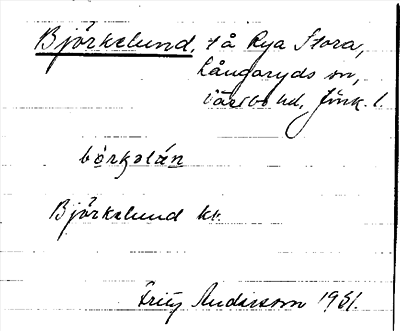 Björkelund, tå Rya Stora,
Långaryds sn,
Västbo hd, Jönk. l.
börkəlán
Björkelund kt.
Fritz Andersson 1931.